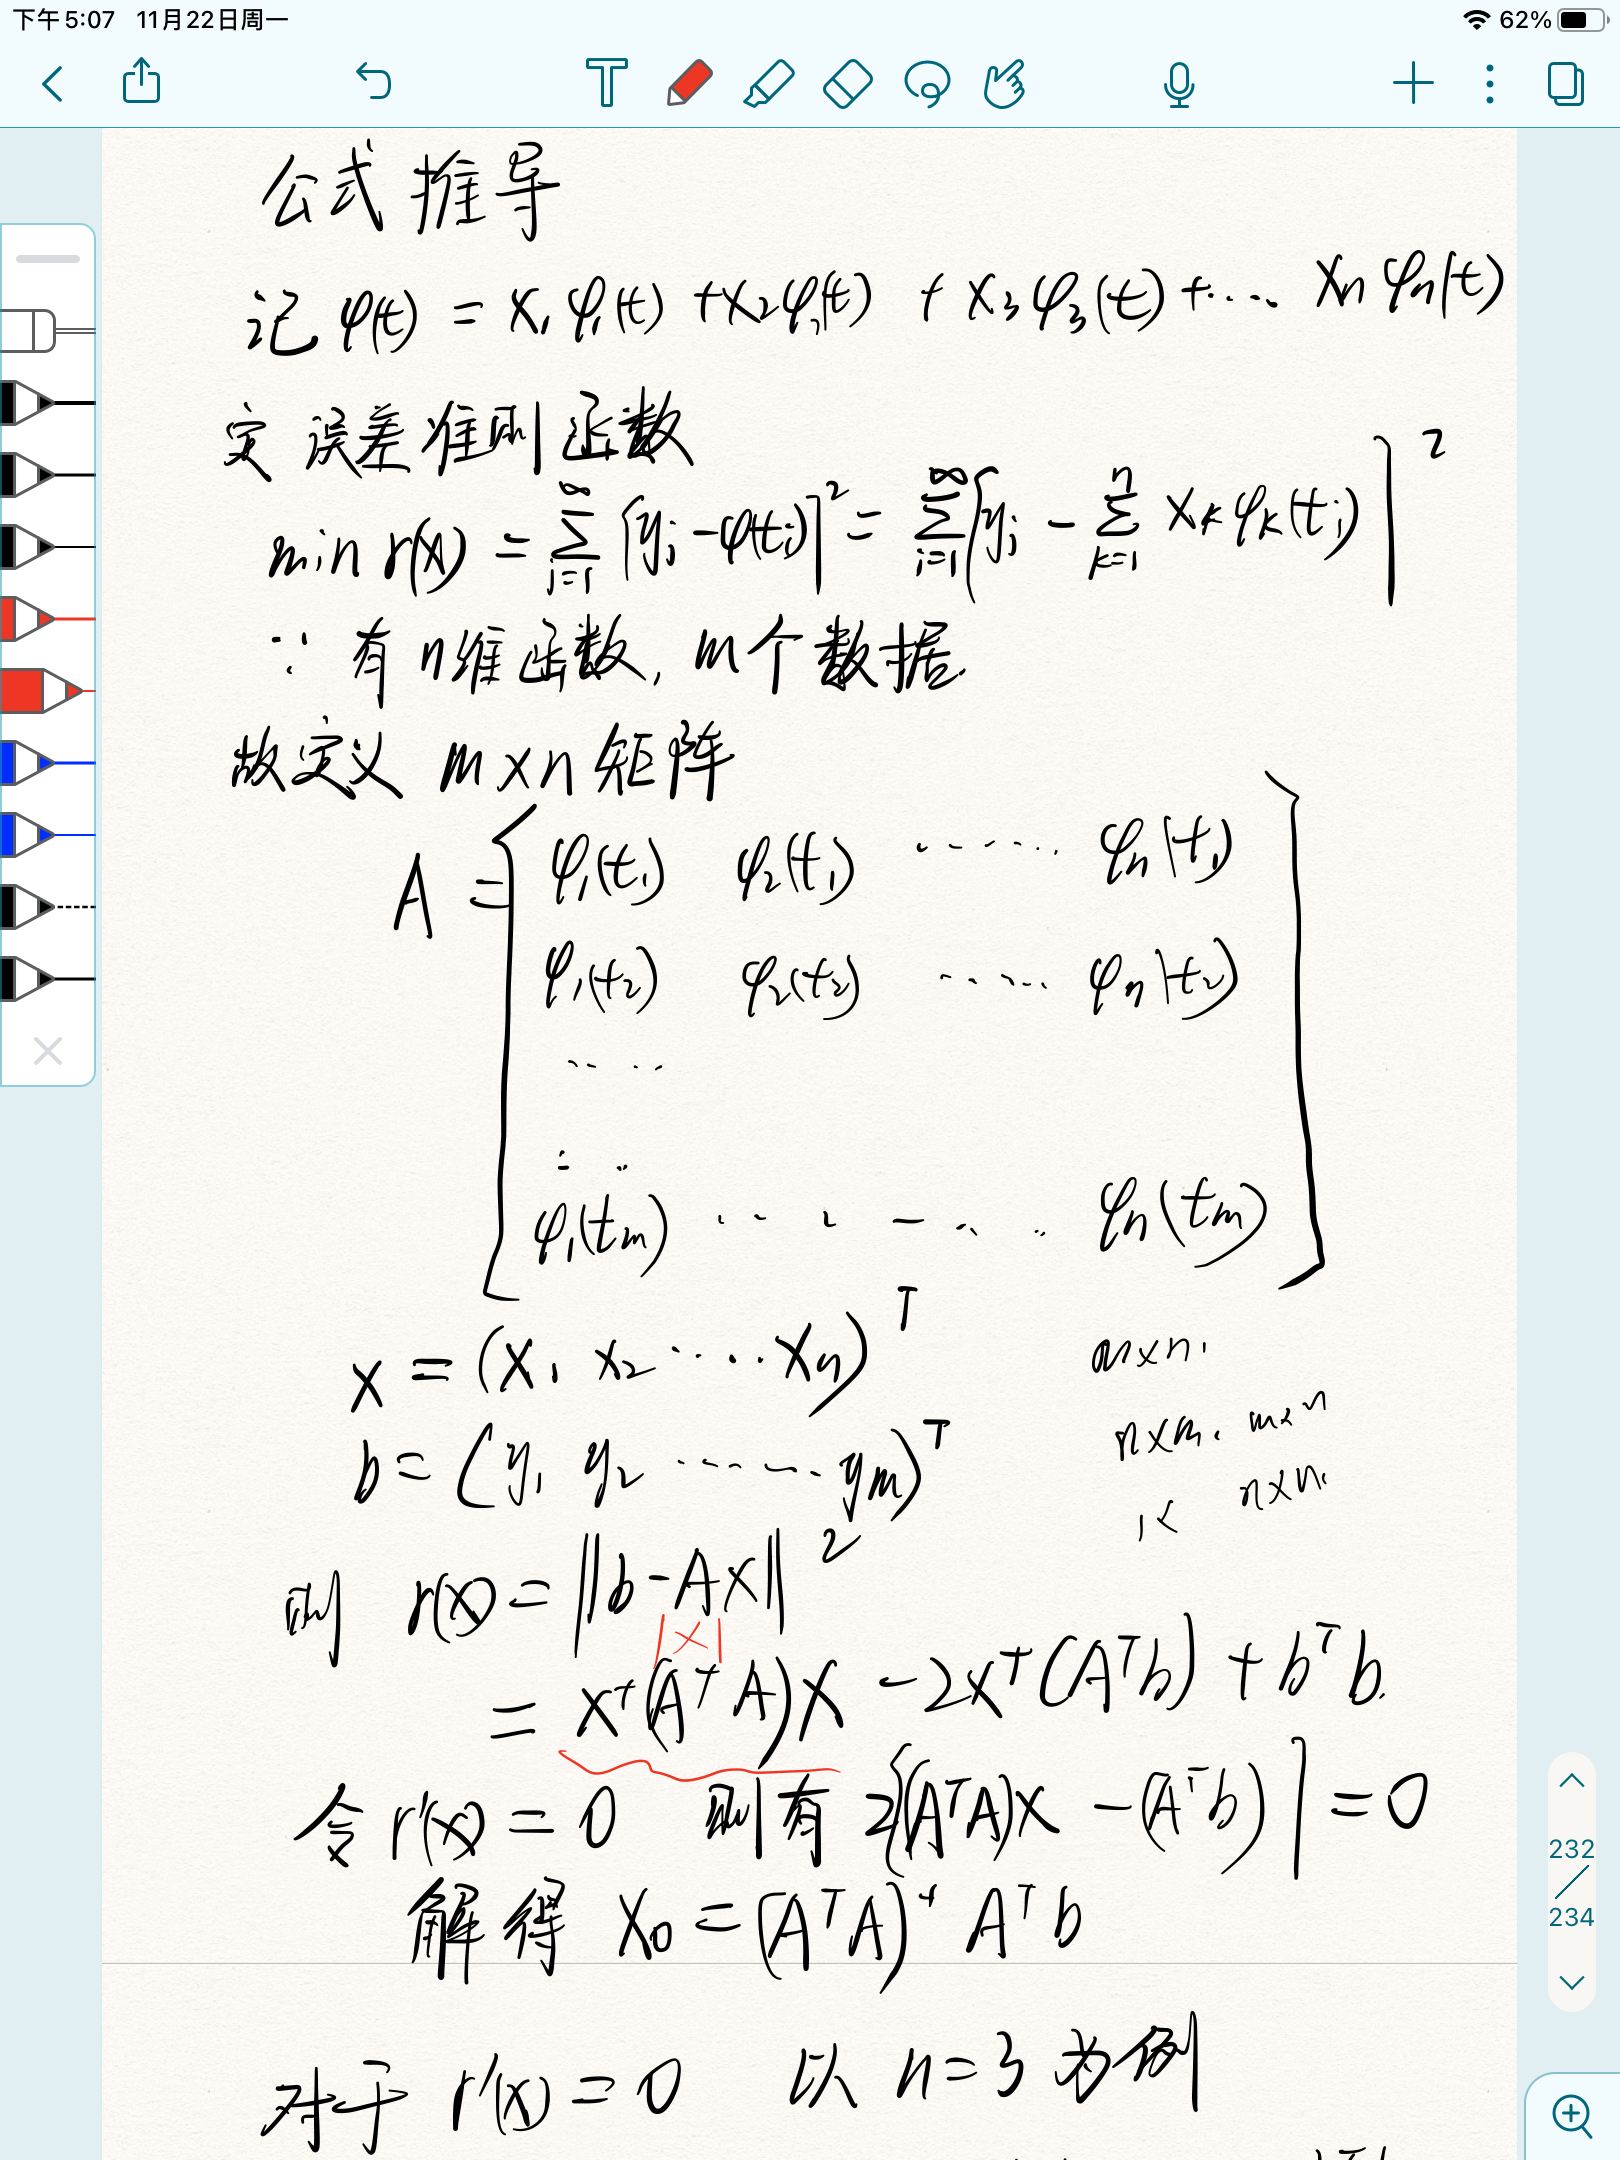 下午5:07 11月22日周一 62%
T
公式推导
记 φ(t) = x₁φ₁(t) + x₂φ₂(t) + x₃φ₃(t) + ... xₙφₙ(t)
定 误差准则函数
min r(x) = ∑_{i=1}^{∞} [yᵢ - φ(tᵢ)]² = ∑_{i=1}^{∞} [yᵢ - ∑_{k=1}^{n} xₖφₖ(tᵢ)]²
∵ 有n维函数, m个数据.
故定义 m×n 矩阵
A = [φ₁(t₁) φ₂(t₁) ...... φₙ(t₁)
φ₁(t₂) φ₂(t₂) ...... φₙ(t₂)
....
φ₁(tₘ) ...... φₙ(tₘ)]
x = (x₁ x₂ ..... xₙ)ᵀ
m×n.
n×m. m×n
b = (y₁ y₂ ...... yₘ)ᵀ
n×n.
1<
则 r(x) = ‖b - Ax‖²
|×|
= xᵀ(AᵀA)x - 2xᵀ(Aᵀb) + bᵀb.
令 r'(x) = 0 则有 2[(AᵀA)x - (Aᵀb)] = 0
232
234
解得 x₀ = (AᵀA)⁺Aᵀb
对于 r'(x) = 0 以 n=3 为例